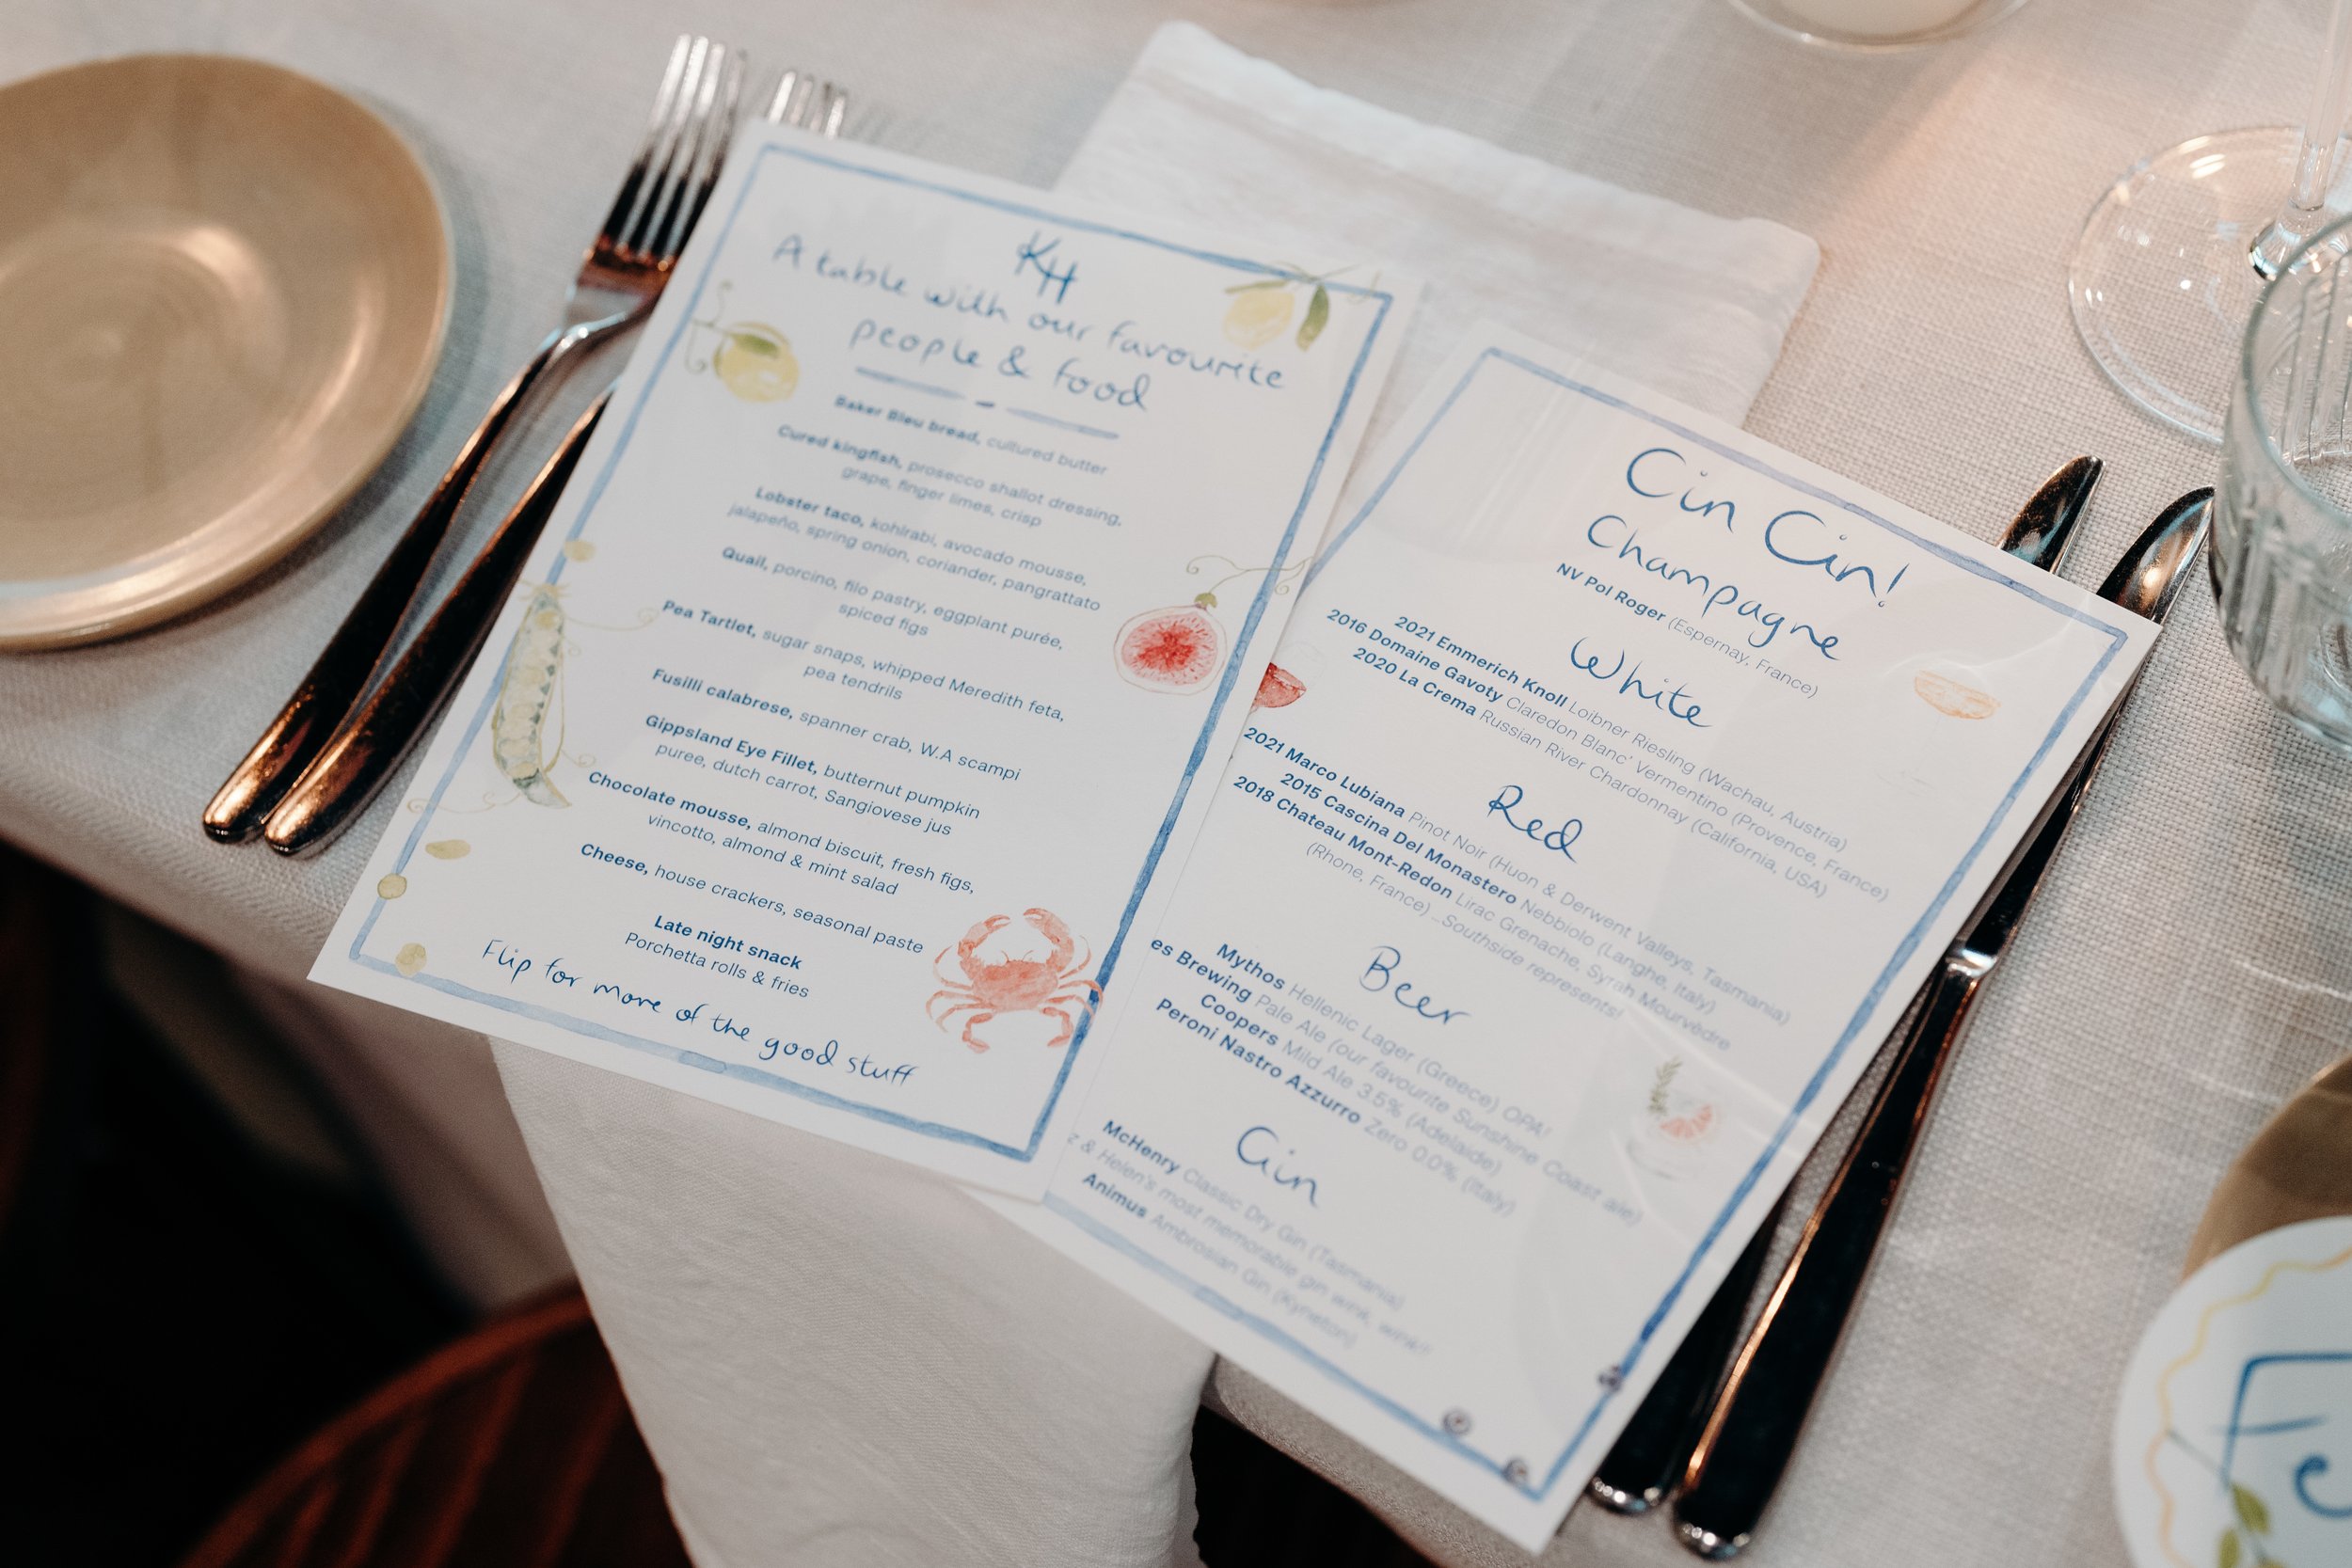 KH
A table with our favourite
people & food
Baker Bleu bread, cultured butter
Cured kingfish, prosecco shallot dressing,
grape, finger limes, crisp
Lobster taco, kohlrabi, avocado mousse,
jalapeño, spring onion, coriander, pangrattato
Quail, porcino, filo pastry, eggplant purée,
spiced figs
Pea Tartlet, sugar snaps, whipped Meredith feta,
pea tendrils
Fusilli calabrese, spanner crab, W.A scampi
Gippsland Eye Fillet, butternut pumpkin
puree, dutch carrot, Sangiovese jus
Chocolate mousse, almond biscuit, fresh figs,
vincotto, almond & mint salad
Cheese, house crackers, seasonal paste
Late night snack
Porchetta rolls & fries
Flip for more of the good stuff
Cin Cin!
Champagne
NV Pol Roger (Espernay, France)
White
2021 Emmerich Knoll Loibner Riesling (Wachau, Austria)
2016 Domaine Gavoty Claredon Blanc' Vermentino (Provence, France)
2020 La Crema Russian River Chardonnay (California, USA)
Red
2021 Marco Lubiana Pinot Noir (Huon & Derwent Valleys, Tasmania)
2015 Cascina Del Monastero Nebbiolo (Langhe, Italy)
2018 Chateau Mont-Redon Lirac Grenache, Syrah Mourvèdre
(Rhone, France) ..Southside represents!
Beer
Mythos Hellenic Lager (Greece) OPA!
es Brewing Pale Ale (our favourite Sunshine Coast ale)
Coopers Mild Ale 3.5% (Adelaide)
Peroni Nastro Azzurro Zero 0.0% (Italy)
Gin
McHenry Classic Dry Gin (Tasmania)
z & Helen's most memorable gin wink, wink!!
Animus Ambrosian Gin (Kyneton)